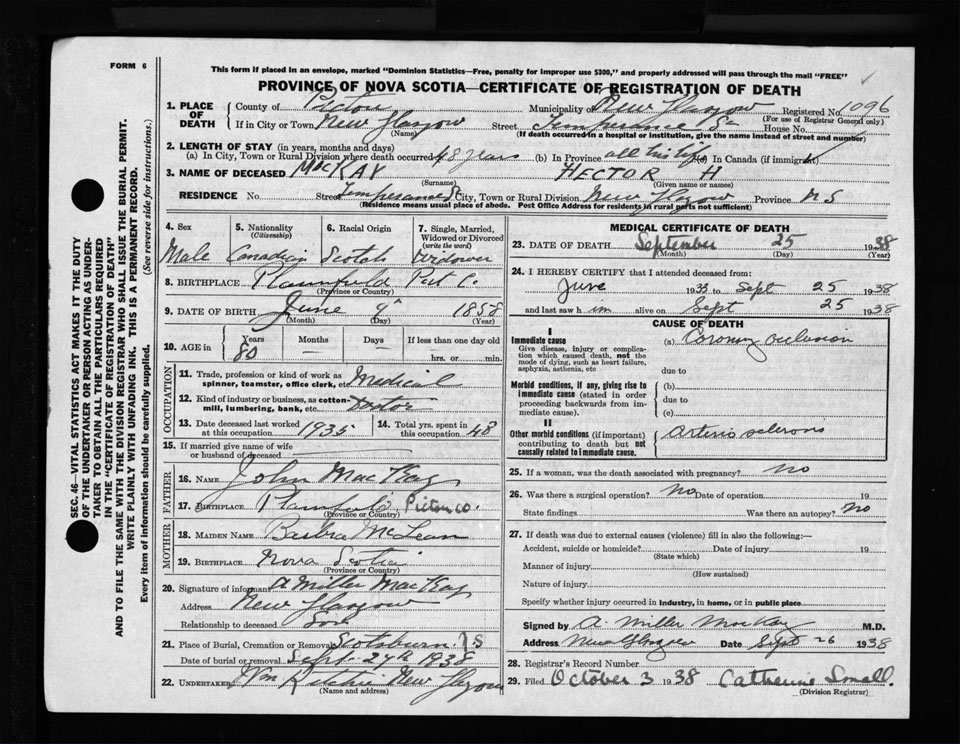 FORM 6
This form if placed in an envelope, marked "Dominion Statistics—Free, penalty for improper use $300," and properly addressed will pass through the mail "FREE"
PROVINCE OF NOVA SCOTIA—CERTIFICATE OF REGISTRATION OF DEATH
1. PLACE OF DEATH County of Pictou Municipality of New Glasgow Registered No. 1096
(For use of Registrar General only)
If in City or Town New Glasgow Street Temperance St House No.
(Name) (If death occurred in a hospital or institution, give the name instead of street and number)
2. LENGTH OF STAY (in years, months and days)
(a) In City, Town or Rural Division where death occurred 48 years (b) In Province all his life (c) In Canada (if immigrant)
3. NAME OF DECEASED MacKAY HECTOR H
(Surname) (Given name or names)
RESIDENCE No. Street Temperance St City, Town or Rural Division New Glasgow Province N S
(Residence means usual place of abode. Post Office Address for residents in rural parts not sufficient)
4. Sex 5. Nationality (Citizenship) 6. Racial Origin 7. Single, Married, Widowed or Divorced (write the word)
Male Canadian Scotch Widower
8. BIRTHPLACE Plainfield Pict C.
(Province or Country)
9. DATE OF BIRTH June 9 1858
(Month) (Day) (Year)
10. AGE in Years Months Days If less than one day old
80 — — hrs. or min.
OCCUPATION
11. Trade, profession or kind of work as spinner, teamster, office clerk, etc. Medical
12. Kind of industry or business, as cotton-mill, lumbering, bank, etc. Doctor
13. Date deceased last worked at this occupation 1935 14. Total yrs. spent in this occupation 48
15. If married give name of wife or husband of deceased
FATHER
16. NAME John MacKay
17. BIRTHPLACE Plainfield Pictou Co.
(Province or Country)
MOTHER
18. MAIDEN NAME Barbra McLean
19. BIRTHPLACE Nova Scotia
(Province or Country)
20. Signature of informant A Miller MacKay
Address New Glasgow
Relationship to deceased Son
21. Place of Burial, Cremation or Removal Scotsburn N S
Date of burial or removal Sept 27th 1938
22. UNDERTAKER Wm Ritchie New Glasgow
(Name and address)
MEDICAL CERTIFICATE OF DEATH
23. DATE OF DEATH September 25 1938
(Month) (Day) (Year)
24. I HEREBY CERTIFY that I attended deceased from:
June 1933 to Sept 25 1938
and last saw h im alive on Sept 25 1938
CAUSE OF DEATH
I
Immediate cause (a) Coronary occlusion
Give disease, injury or complication which caused death, not the mode of dying, such as heart failure, asphyxia, asthenia, etc
due to
Morbid conditions, if any, giving rise to immediate cause (stated in order proceeding backwards from immediate cause).
(b)
due to
(c)
II
Other morbid conditions (if important) contributing to death but not causally related to immediate cause.
Arterio sclerosis
25. If a woman, was the death associated with pregnancy? no
26. Was there a surgical operation? no Date of operation 19
State findings Was there an autopsy? no
27. If death was due to external causes (violence) fill in also the following:—
Accident, suicide or homicide? Date of injury 19
(State which)
Manner of injury
(How sustained)
Nature of injury
Specify whether injury occurred in industry, in home, or in public place
Signed by A Miller MacKay M.D.
Address New Glasgow Date Sept 26 1938
28. Registrar's Record Number
29. Filed October 3 1938 Catherine Small.
(Division Registrar)
SEC. 46—VITAL STATISTICS ACT MAKES IT THE DUTY
OF THE UNDERTAKER OR PERSON ACTING AS UNDER-
TAKER TO OBTAIN ALL THE PARTICULARS REQUIRED
IN THE "CERTIFICATE OF REGISTRATION OF DEATH"
AND TO FILE THE SAME WITH THE DIVISION REGISTRAR WHO SHALL ISSUE THE BURIAL PERMIT.
WRITE PLAINLY WITH UNFADING INK. THIS IS A PERMANENT RECORD.
Every item of information should be carefully supplied. (See reverse side for instructions.)